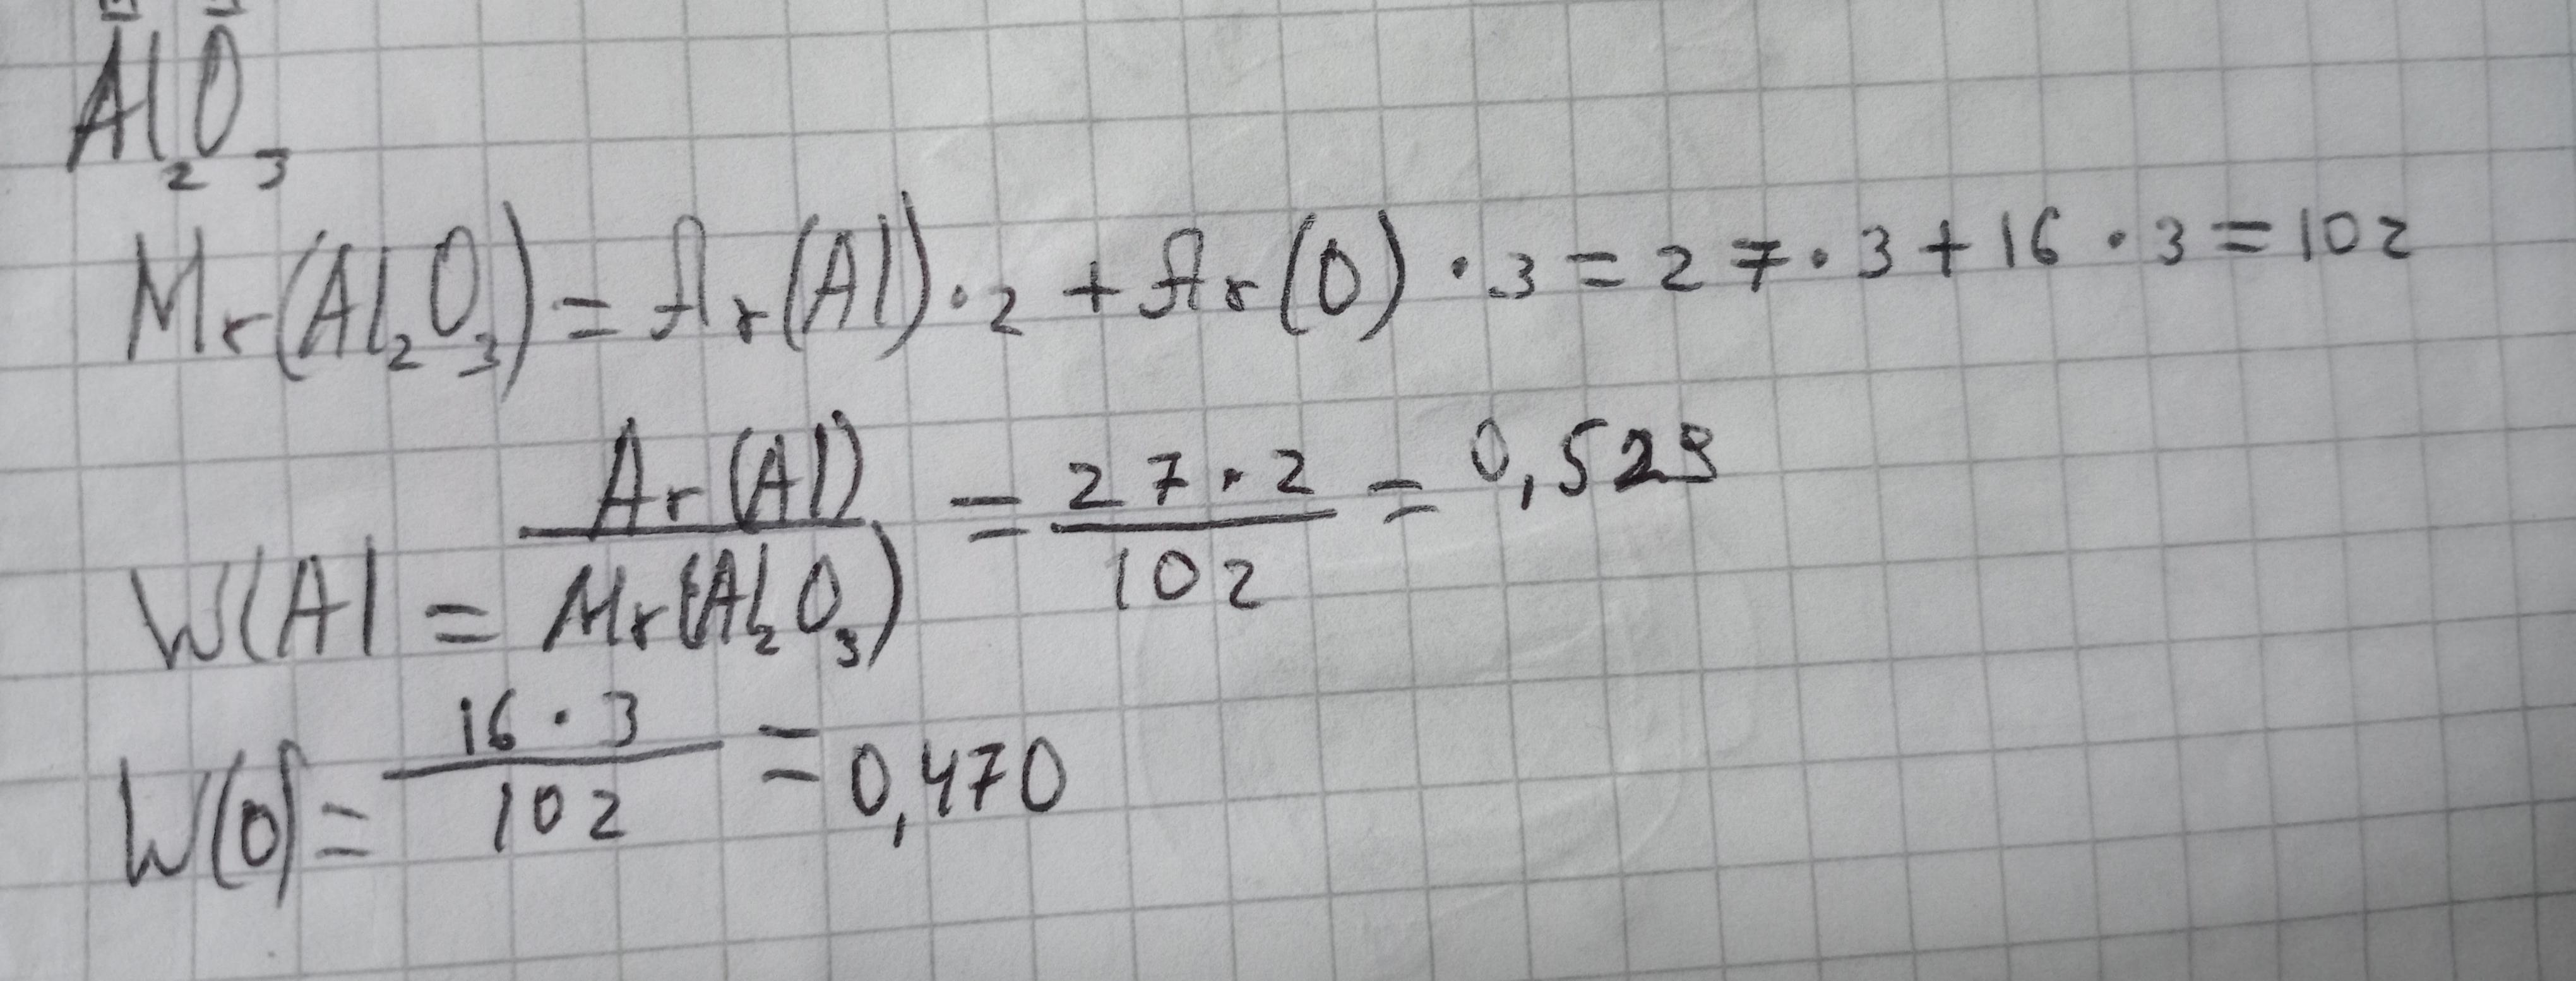 Al₂O₃
Mr(Al₂O₃) = Ar(Al)·2 + Ar(O)·3 = 27·3+16·3=102
W(Al = Ar(Al) / Mr(Al₂O₃) = 27·2 / 102 = 0,529
W(O) = 16·3 / 102 = 0,470